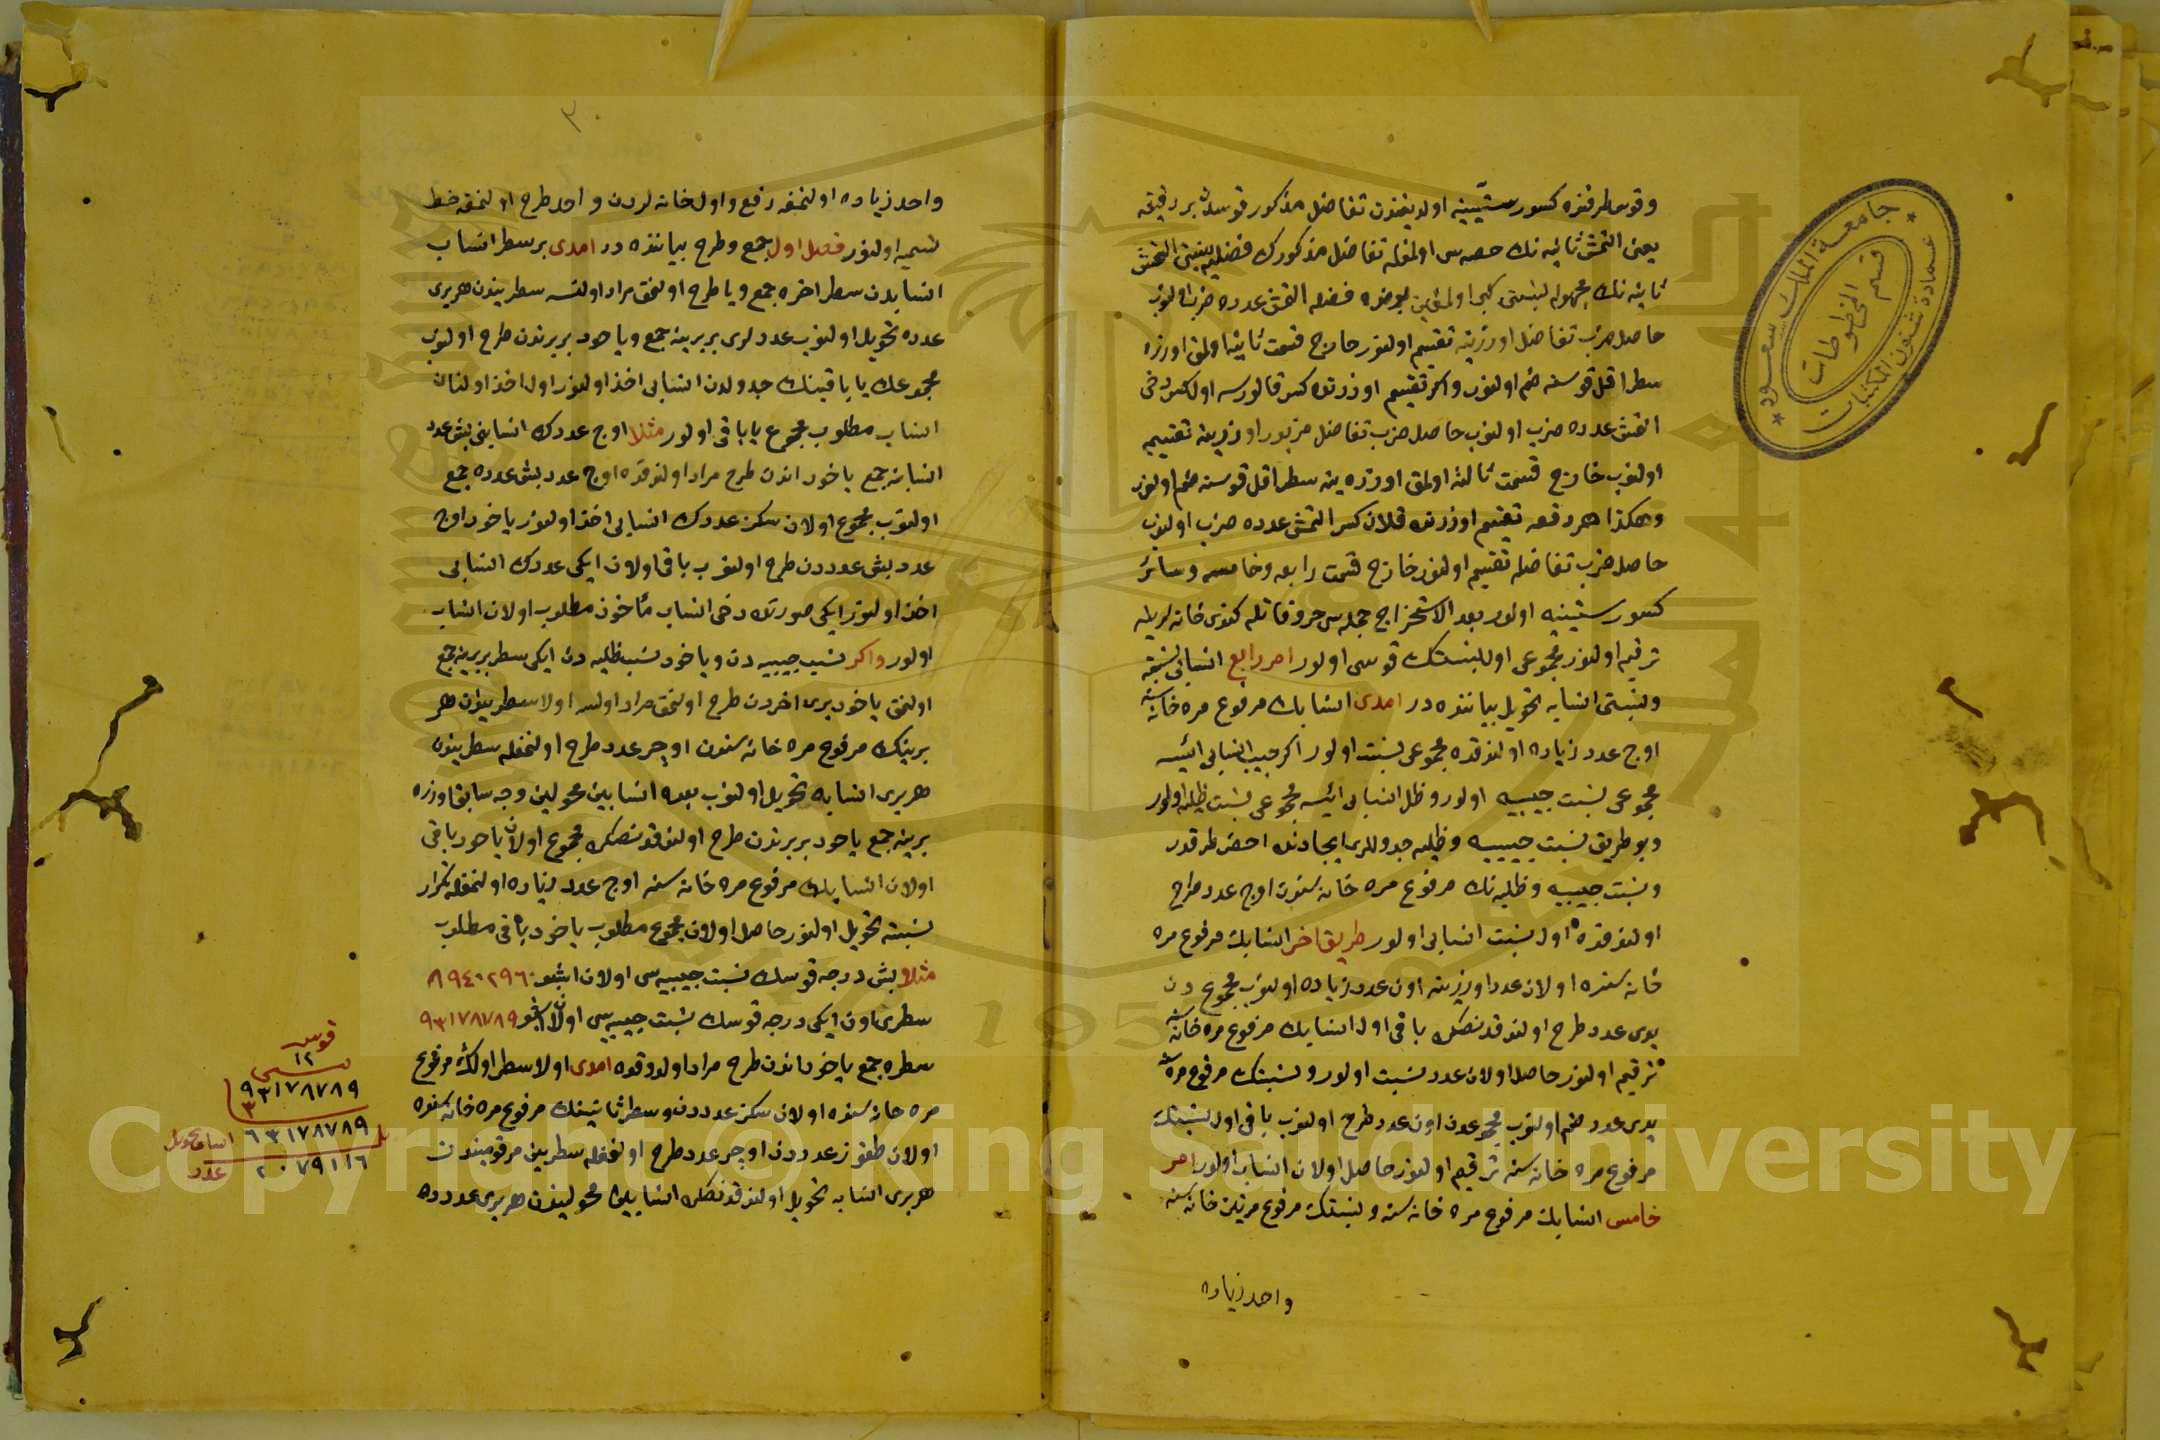 وقوسلر قنزه كسور ستينيه اولديغندن تفاضل مذكور قوسلرك بر دقيقه
يعنى التمش ثانيه نك حصه سى اولمغله تفاضل مذكورك فضله التمش
ثانيه نك مجهوله نسبتى كبى اولمغين فضله التمش عدده ضرب اولنوب
حاصل ضرب تفاضل اوزرينه تقسيم اولنور خارج قسمت ثانيه اولمق اوزره
سطر اقل قوسنه ضم اولنور واكر تقسيم اوزرنده كسر قالورسه اول كسر دخى
التمش عدده ضرب اولنوب حاصل ضرب تفاضل مزبور اوزرينه تقسيم
اولنوب خارج قسمت ثالثه اولمق اوزره ينه سطر اقل قوسنه ضم اولنور
وهكذا هر دفعه تقسيم اوزرنده قلان كسر التمش عدده ضرب اولنوب
حاصل ضرب تفاضله تقسيم اولنور خارج قسمت رابعه وخامسه وسائر
كسور ستينيه اولور بعد الاستخراج جمله سى حروفاتله كندى خانه لرينه
ترقيم اولنور مجموعى اول نسبتك قوسى اولور امر رابع انسابى نسبته
ونسبتى انسابه تحويل بياننده در امدى انسابك مرفوع مره خانه سنه
اوج عدد زياده اولندقده مجموعى نسبت اولور اكر جيب انسابى ايسه
مجموعى نسبت جيبيه اولور وظل انسابى ايسه مجموعى نسبت ظليه اولور
وبو طريق نسبت جيبيه وظليه جدوللرى ايجادنده احضر طرقدر
ونسبت جيبيه وظليه نك مرفوع مره خانه سندن اوج عدد طرح
اولندقده اول نسبت انسابى اولور طريق اخر انسابك مرفوع مره
خانه سنده اولان عدد اوزرينه اون عدد زياده اولنوب مجموع دن
يدى عدد طرح اولندقدنصكره باقى اول انسابك مرفوع مره خانه سنه
ترقيم اولنور حاصل اولان عدد نسبت اولور ونسبتك مرفوع مره سنه
يدى عدد ضم اولنوب مجموعدن اون عدد طرح اولنوب باقى اول نسبتك
مرفوع مره خانه سنه ترقيم اولنور حاصل اولان انساب اولور امر
خامس انسابك مرفوع مره خانه سنه ونسبتك مرفوع مرتين خانه سنه
واحد زياده
جامعة الملك سعود
عمادة شئون المكتبات
قسم المخطوطات
٣
واحد زياده اولنمغه رفع واول خانه لردن واحد طرح اولنمغه خط
تسميه اولنور فصل اول جمع وطرح بياننده در امدى بر سطر انساب
انسابدن سطر اخره جمع ويا طرح اولنمق مراد اولنسه سطريندن هربرى
عدده تحويل اولنوب عددلرى بربرينه جمع وياخود بربرندن طرح اولنوب
مجموعك يا باقينك جدولدن انسابى اخذ اولنور اول اخذ اولنان
انساب مطلوب مجموع يا باقى اولور مثلا اوج عددك انسابنى بش عدد
انسابنه جمع ياخود اندن طرح مراد اولندقده اوج عدد بش عدده جمع
اولنوب مجموع اولان سكز عددك انسابى اخذ اولنور ياخود اوج
عدد بش عدددن طرح اولنوب باقى اولان ايكى عددك انسابى
اخذ اولنور ايكى صورتده دخى انساب مأخوذ مطلوب اولان انساب
اولور واكر نسب جيبيه دن وياخود نسب ظليه دن ايكى سطر بربرينه جمع
اولنمق ياخود برى اخردن طرح اولنمق مراد اولنسه اولا سطريندن هر
برينك مرفوع مره خانه سندن اوچر عدد طرح اولنمغله سطريندن
هربرى انسابه تحويل اولنوب بعده انسابين محولين وجه سابق اوزره
بربرينه جمع ياخود بربرندن طرح اولندقدنصكره مجموع اولان ياخود باقى
اولان انسابك مرفوع مره خانه سنه اوج عدد زياده اولنمغله تكرار
نسبته تحويل اولنور حاصل اولان مجموع مطلوب ياخود باقى مطلوب
مثلا بش درجه قوسك نسبت جيبيه سى اولان اشبو ٨٩٤٠٢٩٦٠
سطرى اون ايكى درجه قوسك نسبت جيبيه سى اولان اشبو ٩٣١٧٨٧٨٩
سطره جمع ياخود اندن طرح مراد اولندقده امدى اولا سطر اولك مرفوع
مره خانه سنده اولان سكز عدددن وسطر ثانينك مرفوع مره خانه سنده
اولان طقوز عدددن اوچر عدد طرح اولنمغله سطرين مرقوميندن
هربرى انسابه تحويل اولندقدنصكره انسابين محوليندن هربرى عددده
قوس
١٢
٩٣١٧٨٧٨٩
٣
٦٣١٧٨٧٨٩ انساب محول
٢٠٧٩١١٦ عدد
Copyright © King Saud University
1957